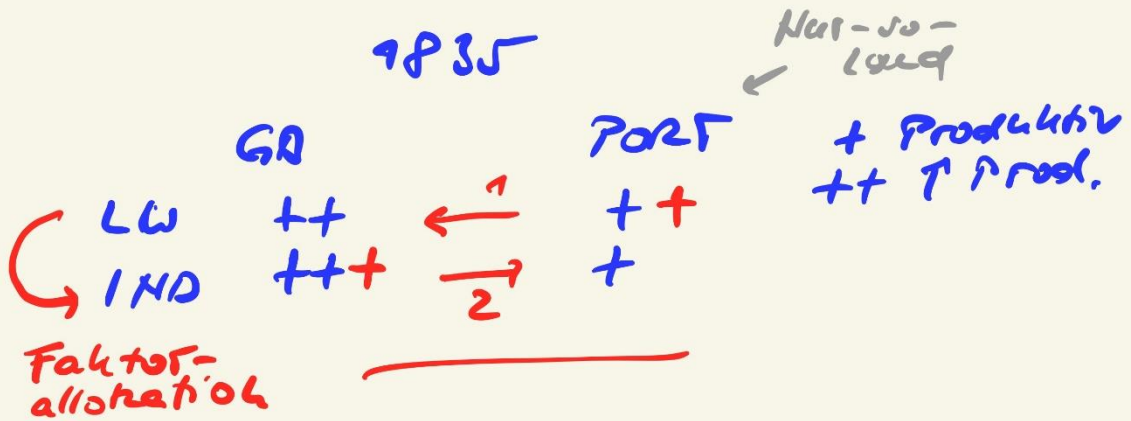 1835
Nur-so-
Land
GB PORT + Produktiv
++ ↑ Prod.
LW ++ ← 1 ++
IND +++ → 2 +
Faktor-
allokation